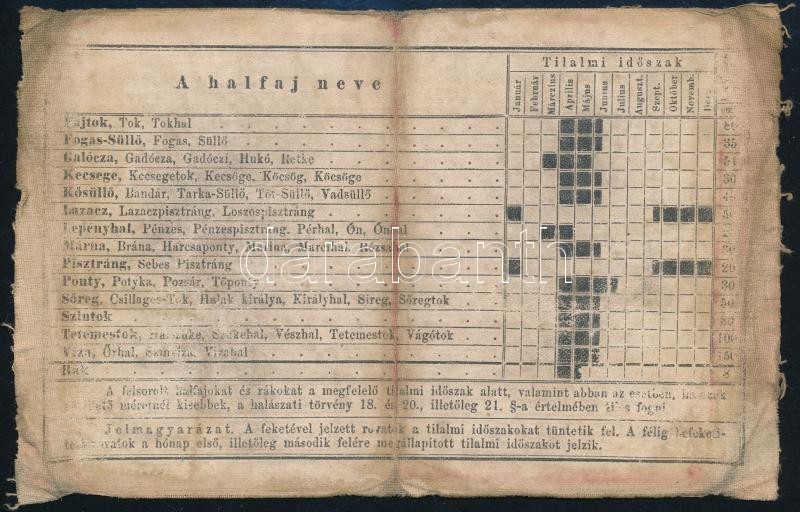 Tilalmi időszak
A halfaj neve
Január Február Márczius Április Május Junius Julius Auguszt. Szept. Október Novemb.
Tok, Tokhal
Fogas-Süllő, Fogas, Süllő 35
Galócza, Gadócza, Gadóczi, Hukó,
Kecsege, Kecsegetok, Kecsőge, Köcsög, Köcsöge
Kősüllő, Bandár, Tarka-Süllő, Tót-Süllő, Vadsüllő
Lazacz, Lazaczpisztráng, Loszospisztráng
Lepényhal, Pénzes, Pénzespisztráng, Pérhal, Ón,
Márna, Brána, Harcsaponty, Marérhal,
Pisztráng, Sebes Pisztráng 20
Ponty, Potyka, Pozsár, Tőponty 30
Sőreg, Csillagos-Tok, Halak királya, Királyhal, Sireg, Sőregtok 50
Szintok
Tetemestok, Vészhal, Tetemestok, Vágótok
Viza, Őrhal, Vizahal
Rák
A felsorolt halfajokat és rákokat a megfelelő tilalmi időszak alatt, valamint abban az esetben, ha
méretnél kisebbek, a halászati törvény 18. és 20., illetőleg 21. §-a értelmében tilos fogni.
Jelmagyarázat. A feketével jelzett rovatok a tilalmi időszakokat tüntetik fel. A félig
a hónap első, illetőleg második felére megállapitott tilalmi időszakot jelzik.
darabanth